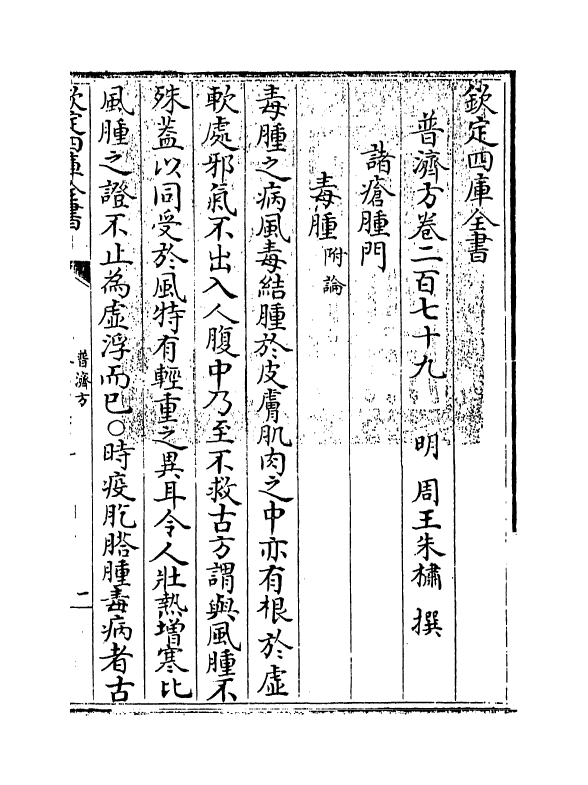 欽定四庫全書
普濟方卷二百七十九　明　周王朱橚　撰
諸瘡腫門
毒腫附論
毒腫之病風毒結腫於皮膚肌肉之中亦有根於虛
軟處邪氣不出入人腹中乃至不救古方謂與風腫不
殊葢以同受於風特有輕重之異耳令人壯熱增寒比
風腫之證不止為虛浮而已○時疫肐㿴腫毒病者古
欽定四庫全書
普濟方